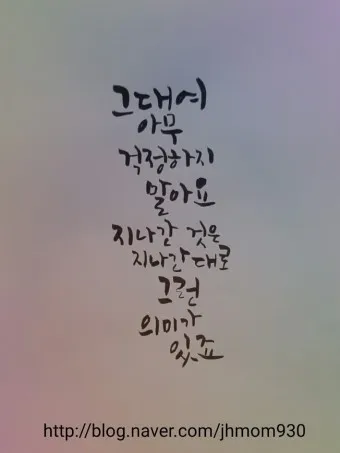 그대여
아무
걱정하지
말아요
지나간 것은
지나간대로
그런
의미가
있죠
http://blog.naver.com/jhmom930